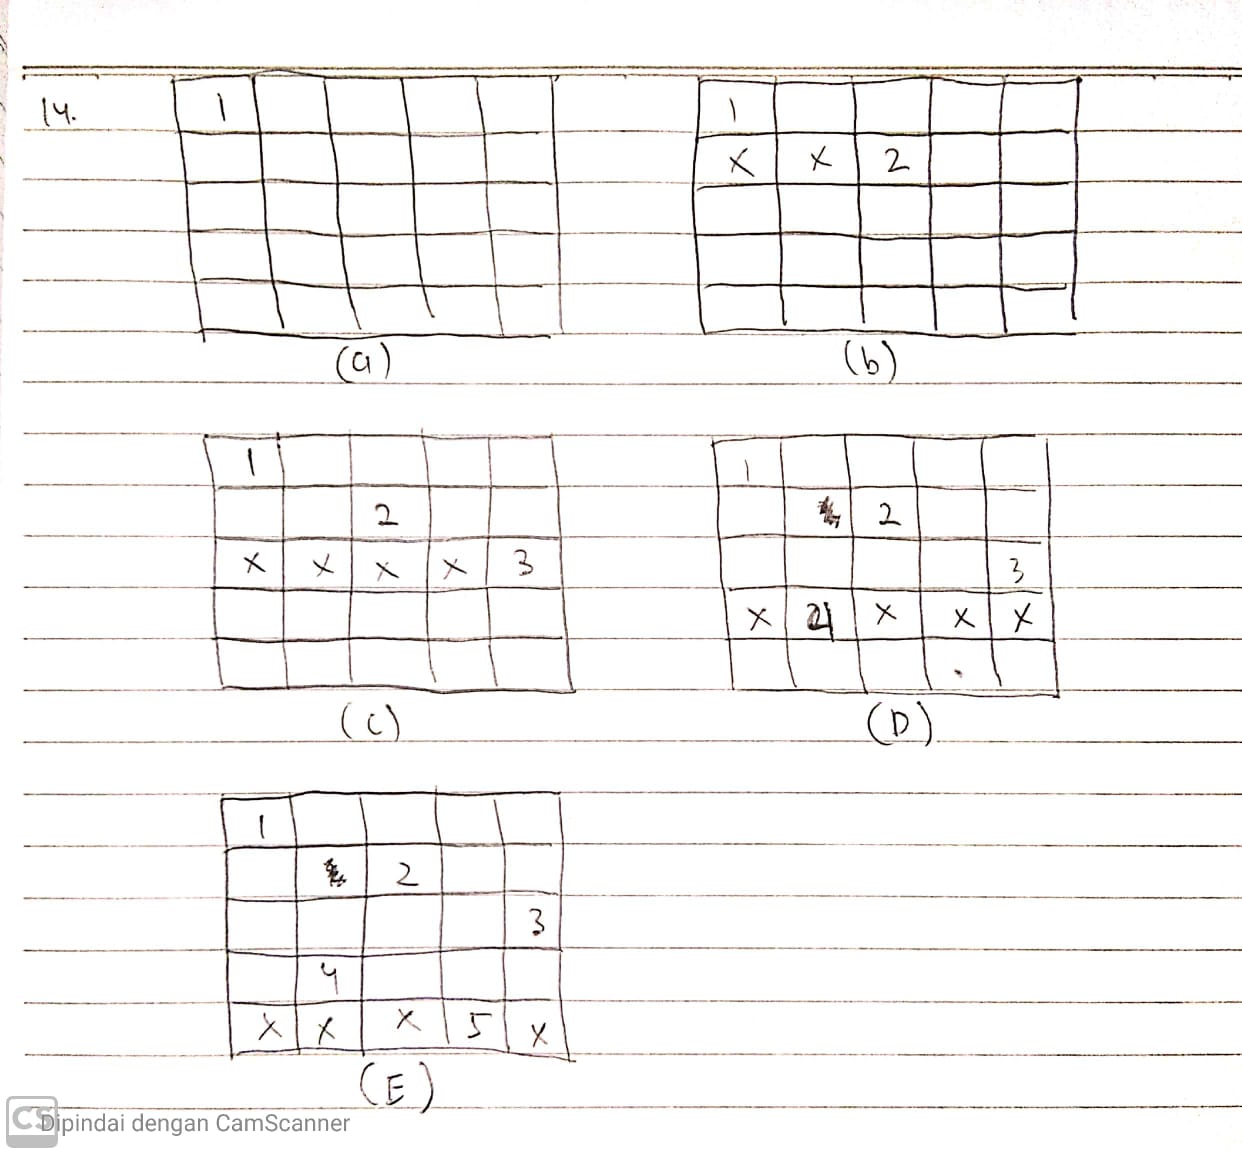 14.
1 1
X X 2
(a) (b)
1 1
2 2
X X X X 3 3
X 4 X X X
(C) (D)
1
2
3
4
X X X 5 X
(E)
CS Dipindai dengan CamScanner